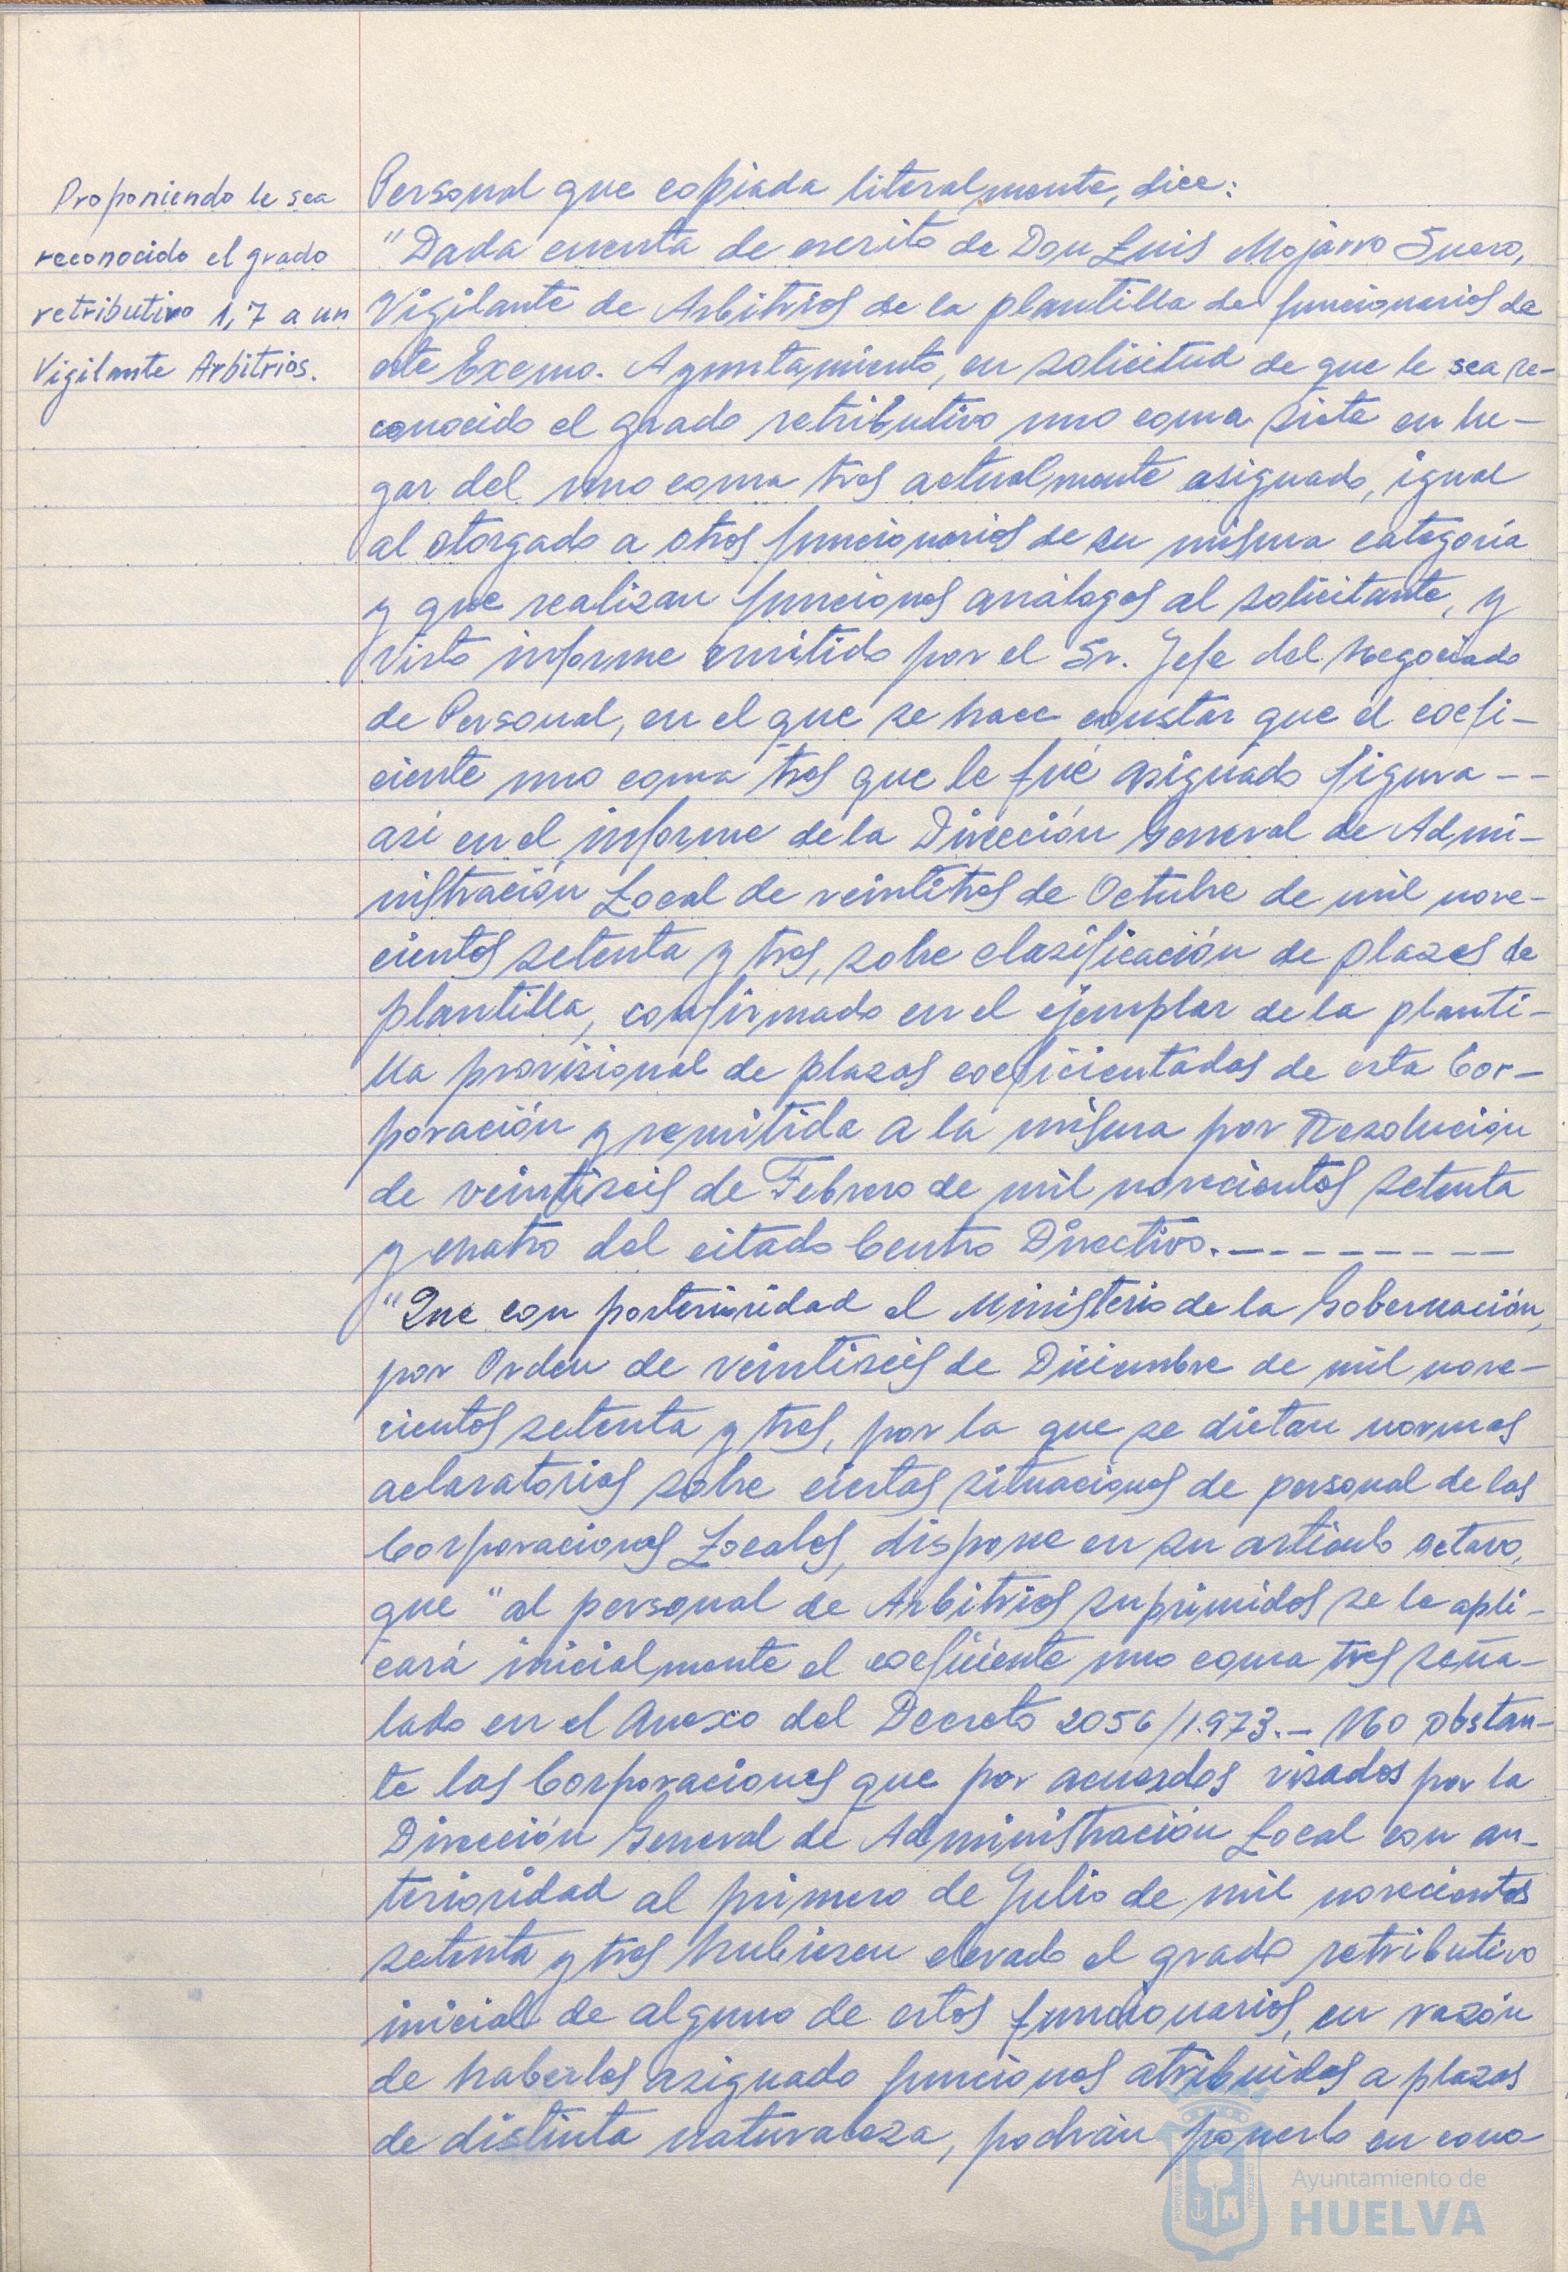 Proponiendo le sea
reconocido el grado
retributivo 1,7 a un
Vigilante Arbitrios.
Personal que copiada literalmente, dice:
"Dada cuenta de escrito de Don Luis Mojarro Suero,
Vigilante de Arbitrios de la plantilla de funcionarios de
este Excmo. Ayuntamiento, en solicitud de que le sea re-
conocido el grado retributivo uno coma siete en lu-
gar del uno coma tres actualmente asignado, igual
al otorgado a otros funcionarios de su misma categoría
y que realizan funciones análogas al solicitante, y
visto informe emitido por el Sr. Jefe del Negociado
de Personal, en el que se hace constar que el coefi-
ciente uno coma tres que le fué asignado figura --
asi en el informe de la Dirección General de Admi-
nistración Local de veintitres de Octubre de mil nove-
cientos setenta y tres, sobre clasificación de plazas de
plantilla, confirmado en el ejemplar de la planti-
lla provisional de plazas coeficientadas de esta Cor-
poración y remitida a la misma por Resolución
de veintiseis de Febrero de mil novecientos setenta
y cuatro del citado Centro Directivo.---------
"Que con posterioridad el Ministerio de la Gobernación,
por Orden de veintiseis de Diciembre de mil nove-
cientos setenta y tres, por la que se dictan normas
aclaratorias sobre ciertas situaciones de personal de las
Corporaciones Locales, dispone en su artículo octavo,
que "al personal de Arbitrios suprimidos se le apli-
cará inicialmente el coeficiente uno coma tres seña-
lado en el Anexo del Decreto 2056/1.973.- No obstan-
te las Corporaciones que por acuerdos visados por la
Dirección General de Administración Local con an-
terioridad al primero de Julio de mil novecientos
setenta y tres hubiesen elevado el grado retributivo
inicial de alguno de estos funcionarios, en razón
de haberles asignado funciones atribuidas a plazas
de distinta naturaleza, podrán ponerlo en cono-
Ayuntamiento de
HUELVA